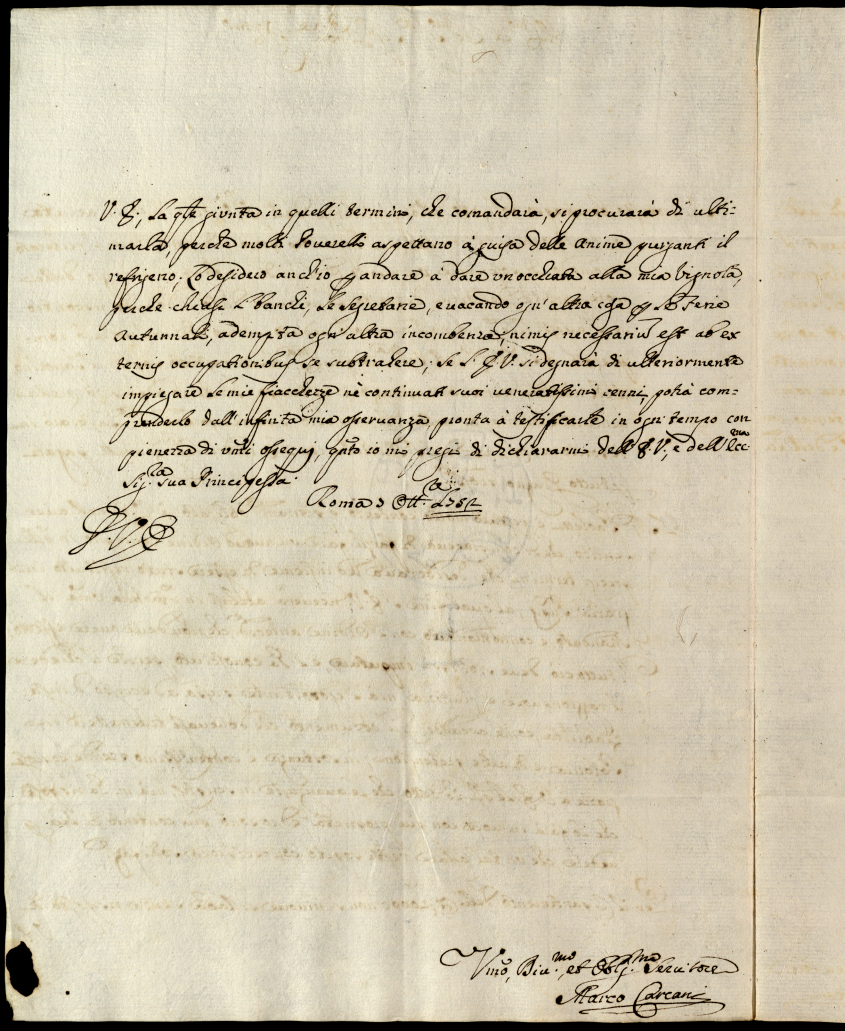 V. E., La qle giunta in quelli termini, che comandarà, si procurarà di ulti-
marla, perche molti Poverelli aspettano à guisa delle Anime purganti il
refrigerio; Io desidero anchio p andare à dare un occhiata alla mia Vignola,
perche chiusi L banchi, Le Segretarie, evacando ogn'altra cosa p Le Ferie
Autunnali, adempita ogn'altra incombenza, nimis necessariũ est ab ex
ternis occupationibus se subtrahere; Se L' E V. si degnarà di ulteriormente
impiegare Le mie fiacchezze nè continuati suoi veneratissimi cenni, potrà com-
prenderlo dall'infinita mia osservanza, pronta à testificarle in ogni tempo con
pienezza di umili ossequij, qnto io mi pregi di dichiararmi dell'E. V., e dell'Ecc:ma
Sig:ra sua Principessa.
Roma 3 Ott.
D. V. E.
Vmo, Div.mo et Obbl.mo Servitore
Marco Carcani